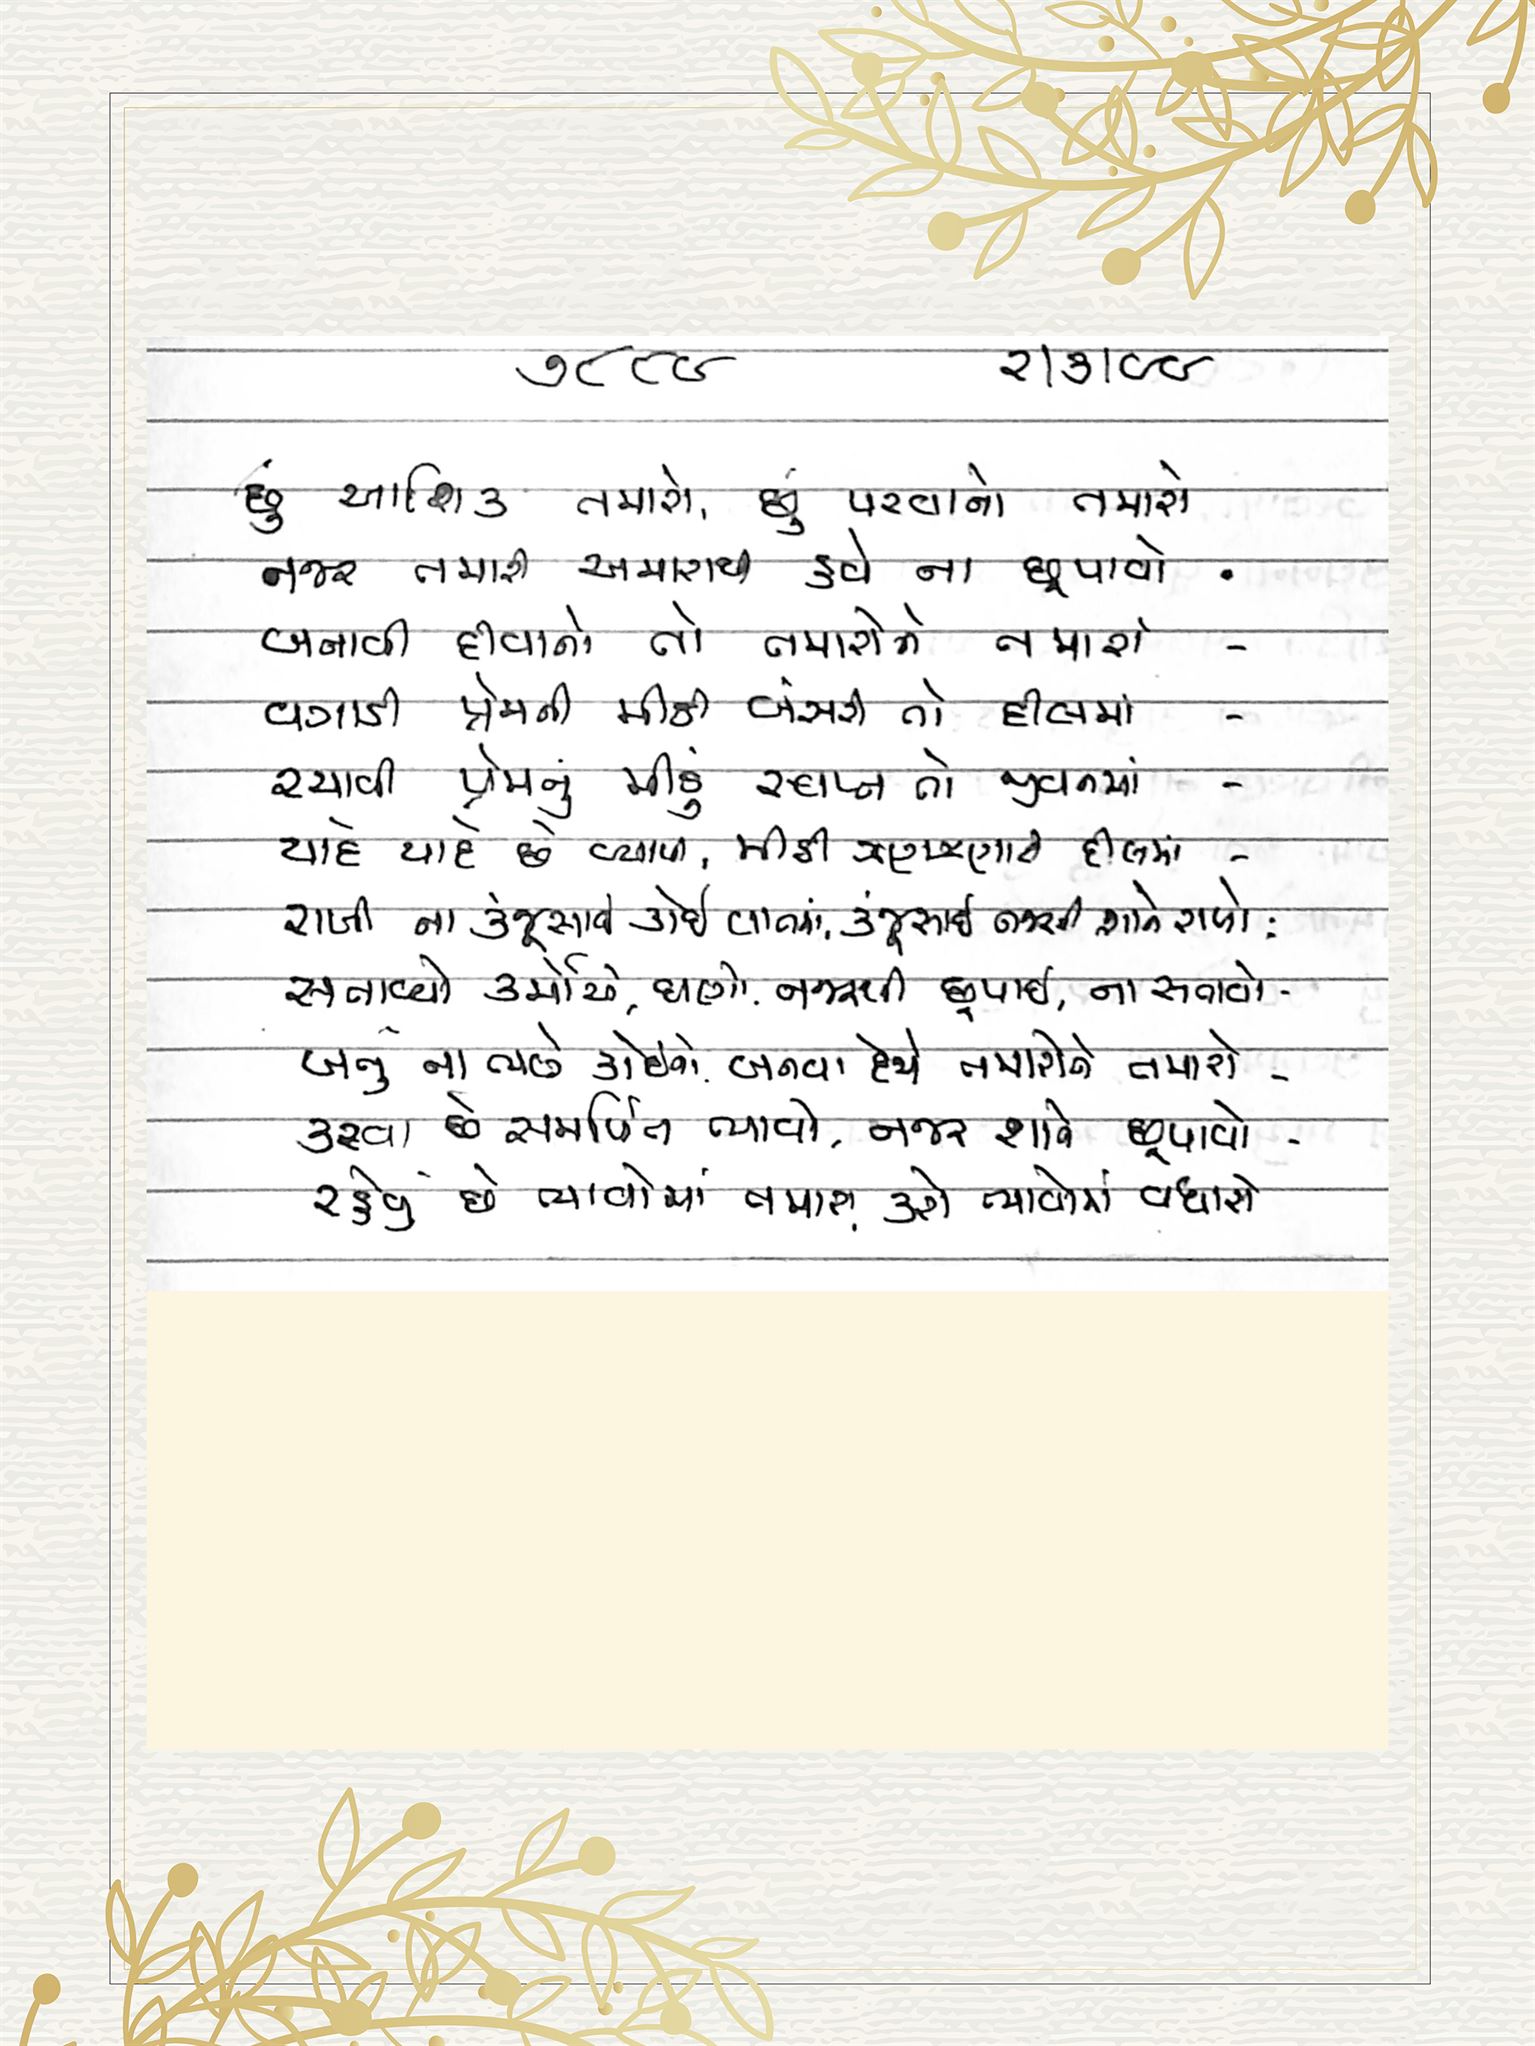 ૭૮૮૯ ૨|૩|૯૯
છું આશિક તમારો, છું પરવાનો તમારો
નજર તમારી અમારાથી હવે ના છૂપાવો .
બનાવી દીવાનો તો તમારોને તમારો -
વગાડી પ્રેમની મીઠી બંસરી તો દીલમાં -
રચાવી પ્રેમનું મીઠું સ્વપ્ન તો જીવનમાં -
યાદે યાદે છે વ્યાપી, મીઠી ઝણઝણાટી દીલમાં -
રાખી ના કંજૂસાઈ કોઈ વાતમાં, કંજૂસાઈ નજરની શાને રાખો :
સતાવ્યો કર્મોએ, ઘણો. નજરથી છૂપાઈ, ના સતાવો -
બનું ના ભલે કોઈનો. બનવા દેજે તમારોને તમારો -
કરવા છે સમર્પિત ભાવો, નજર શાને છૂપાવો -
રહેવું છે ભાવોમાં તમારા, કરો ભાવોમાં વધારો